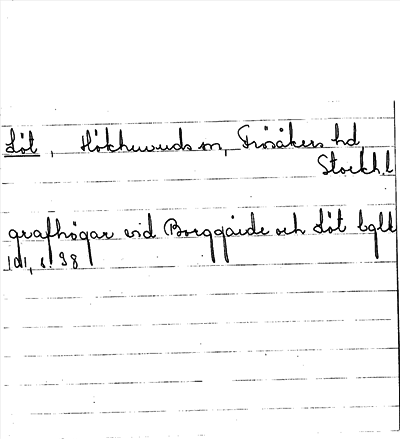 Löt, Hökhuvuds sn, Frösåkers hd,
Stockh. l
grafhögar vid Borggärde och Löt
1d1, s. 98